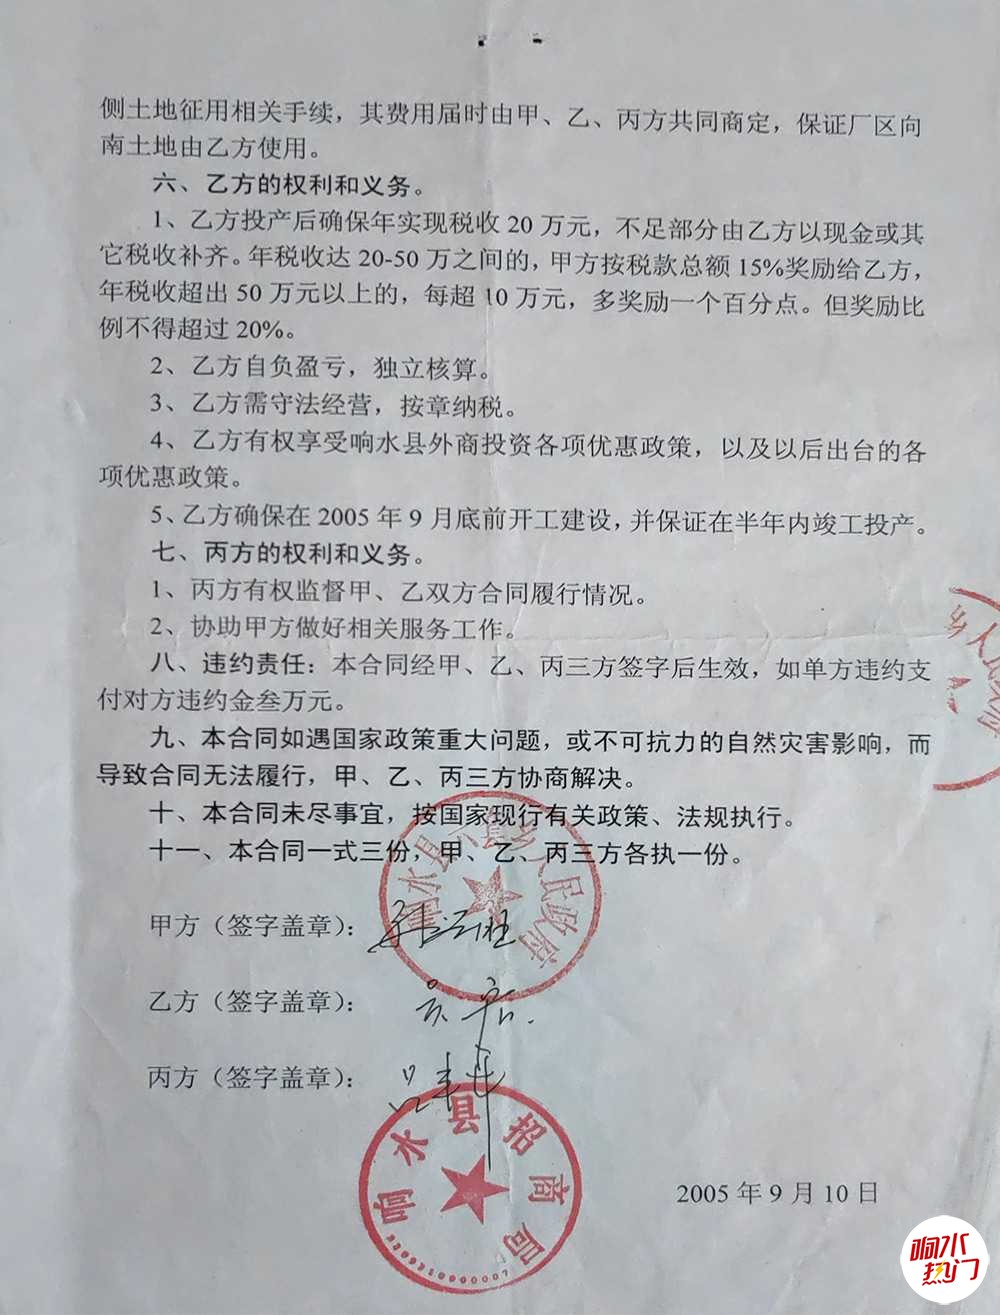 侧土地征用相关手续，其费用届时由甲、乙、丙方共同商定，保证厂区向
南土地由乙方使用。
六、乙方的权利和义务。
1、乙方投产后确保年实现税收 20 万元，不足部分由乙方以现金或其
它税收补齐。年税收达 20-50 万之间的，甲方按税款总额 15%奖励给乙方，
年税收超出 50 万元以上的，每超 10 万元，多奖励一个百分点。但奖励比
例不得超过 20%。
2、乙方自负盈亏，独立核算。
3、乙方需守法经营，按章纳税。
4、乙方有权享受响水县外商投资各项优惠政策，以及以后出台的各
项优惠政策。
5、乙方确保在 2005 年 9 月底前开工建设，并保证在半年内竣工投产。
七、丙方的权利和义务。
1、丙方有权监督甲、乙双方合同履行情况。
2、协助甲方做好相关服务工作。
八、违约责任：本合同经甲、乙、丙三方签字后生效，如单方违约支
付对方违约金叁万元。
九、本合同如遇国家政策重大问题，或不可抗力的自然灾害影响，而
导致合同无法履行，甲、乙、丙三方协商解决。
十、本合同未尽事宜，按国家现行有关政策、法规执行。
十一、本合同一式三份，甲、乙、丙三方各执一份。
响水县六套乡人民政府
甲方（签字盖章）：
乙方（签字盖章）：
丙方（签字盖章）：
响水县招商局
2005 年 9 月 10 日
乡人民政府
响水
热门